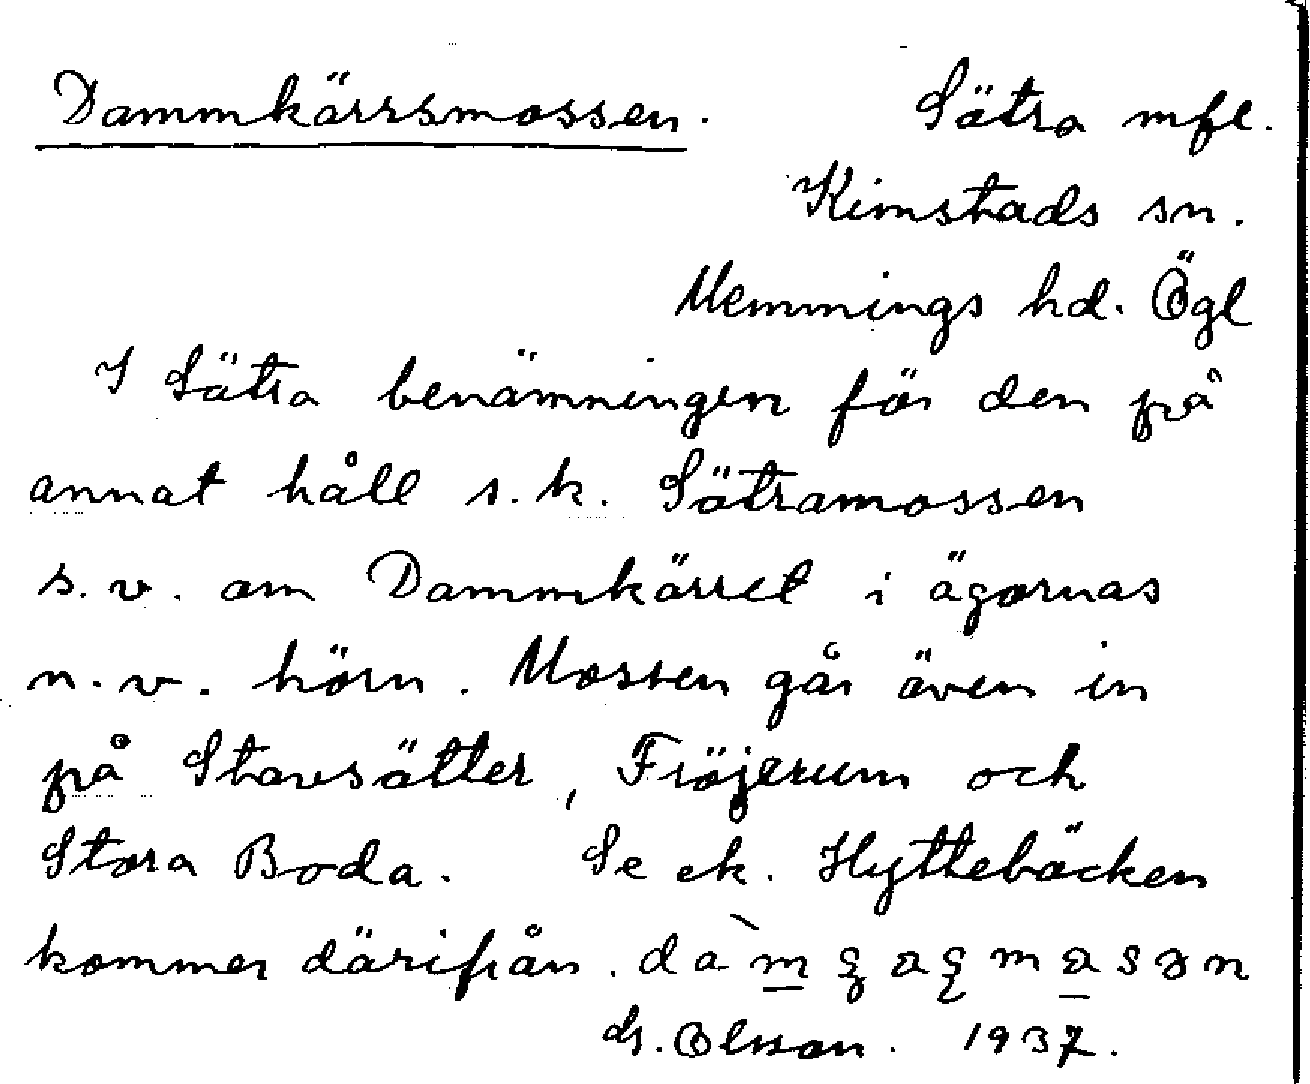 Dammkärrsmossen. Sätra mfl.
Kimstads sn.
Memmings hd. Ögl
I Sätra benämningen för den på
annat håll s.k. Sätramossen
s.v. om Dammkärret i ägornas
n.v. hörn. Mossen går även in
på Stavsätter, Fröjerum och
Stora Boda. Se ek. Hyttebäcken
kommer därifrån.
G. Olsson. 1937.